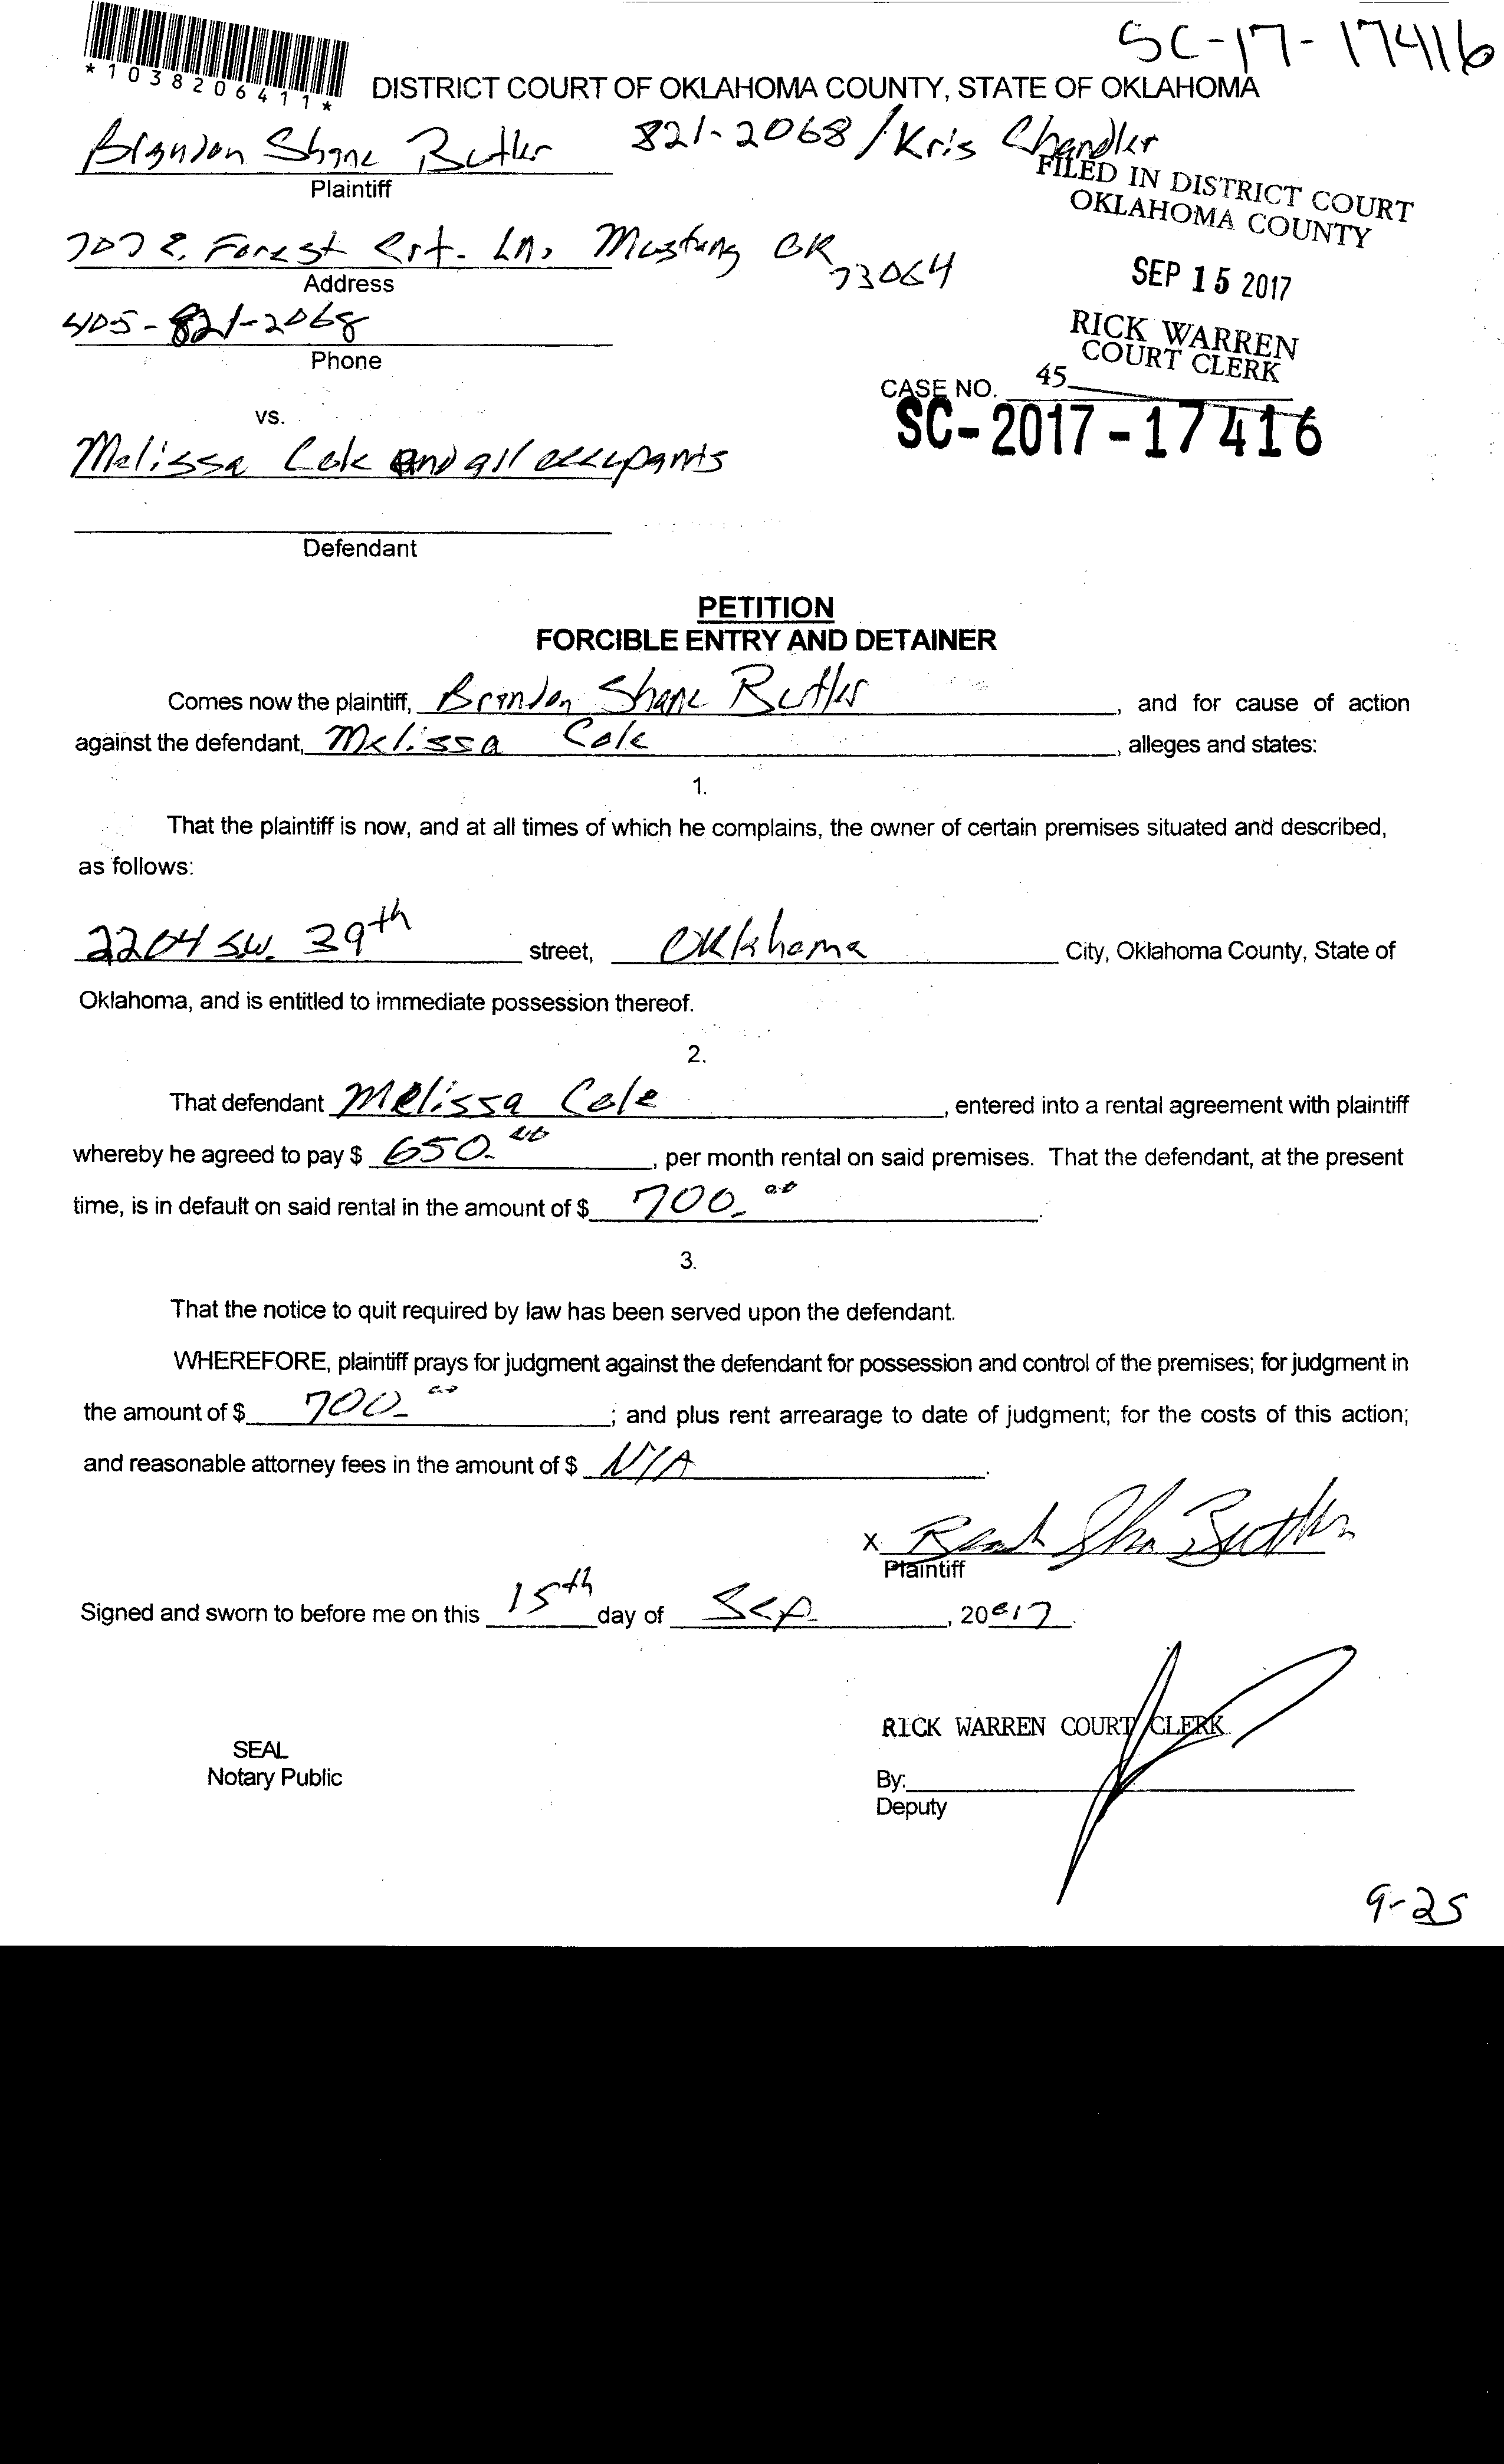 SC-17-17416
*1038206411*
DISTRICT COURT OF OKLAHOMA COUNTY, STATE OF OKLAHOMA
Brandon Shane Butler 821-2068 / Kris Chandler
Plaintiff
FILED IN DISTRICT COURT
OKLAHOMA COUNTY
707 E. Forest Crt. Ln, Mustang OK 73064
Address
SEP 15 2017
405-821-2068
Phone
RICK WARREN
COURT CLERK
45
CASE NO.
SC-2017-17416
vs.
Melissa Cole and all occupants
Defendant
PETITION
FORCIBLE ENTRY AND DETAINER
Comes now the plaintiff, Brandon Shane Butler, and for cause of action
against the defendant, Melissa Cole, alleges and states:
1.
That the plaintiff is now, and at all times of which he complains, the owner of certain premises situated and described,
as follows:
2204 SW. 39th street, Oklahoma City, Oklahoma County, State of
Oklahoma, and is entitled to immediate possession thereof.
2.
That defendant Melissa Cole, entered into a rental agreement with plaintiff
whereby he agreed to pay $ 650.00, per month rental on said premises. That the defendant, at the present
time, is in default on said rental in the amount of $ 700.00.
3.
That the notice to quit required by law has been served upon the defendant.
WHEREFORE, plaintiff prays for judgment against the defendant for possession and control of the premises; for judgment in
the amount of $ 700.00; and plus rent arrearage to date of judgment; for the costs of this action;
and reasonable attorney fees in the amount of $ N/A.
X Brandon Shane Butler
Plaintiff
Signed and sworn to before me on this 15th day of Sep, 20 17.
RICK WARREN COURT CLERK
SEAL
Notary Public
By:
Deputy
9-25